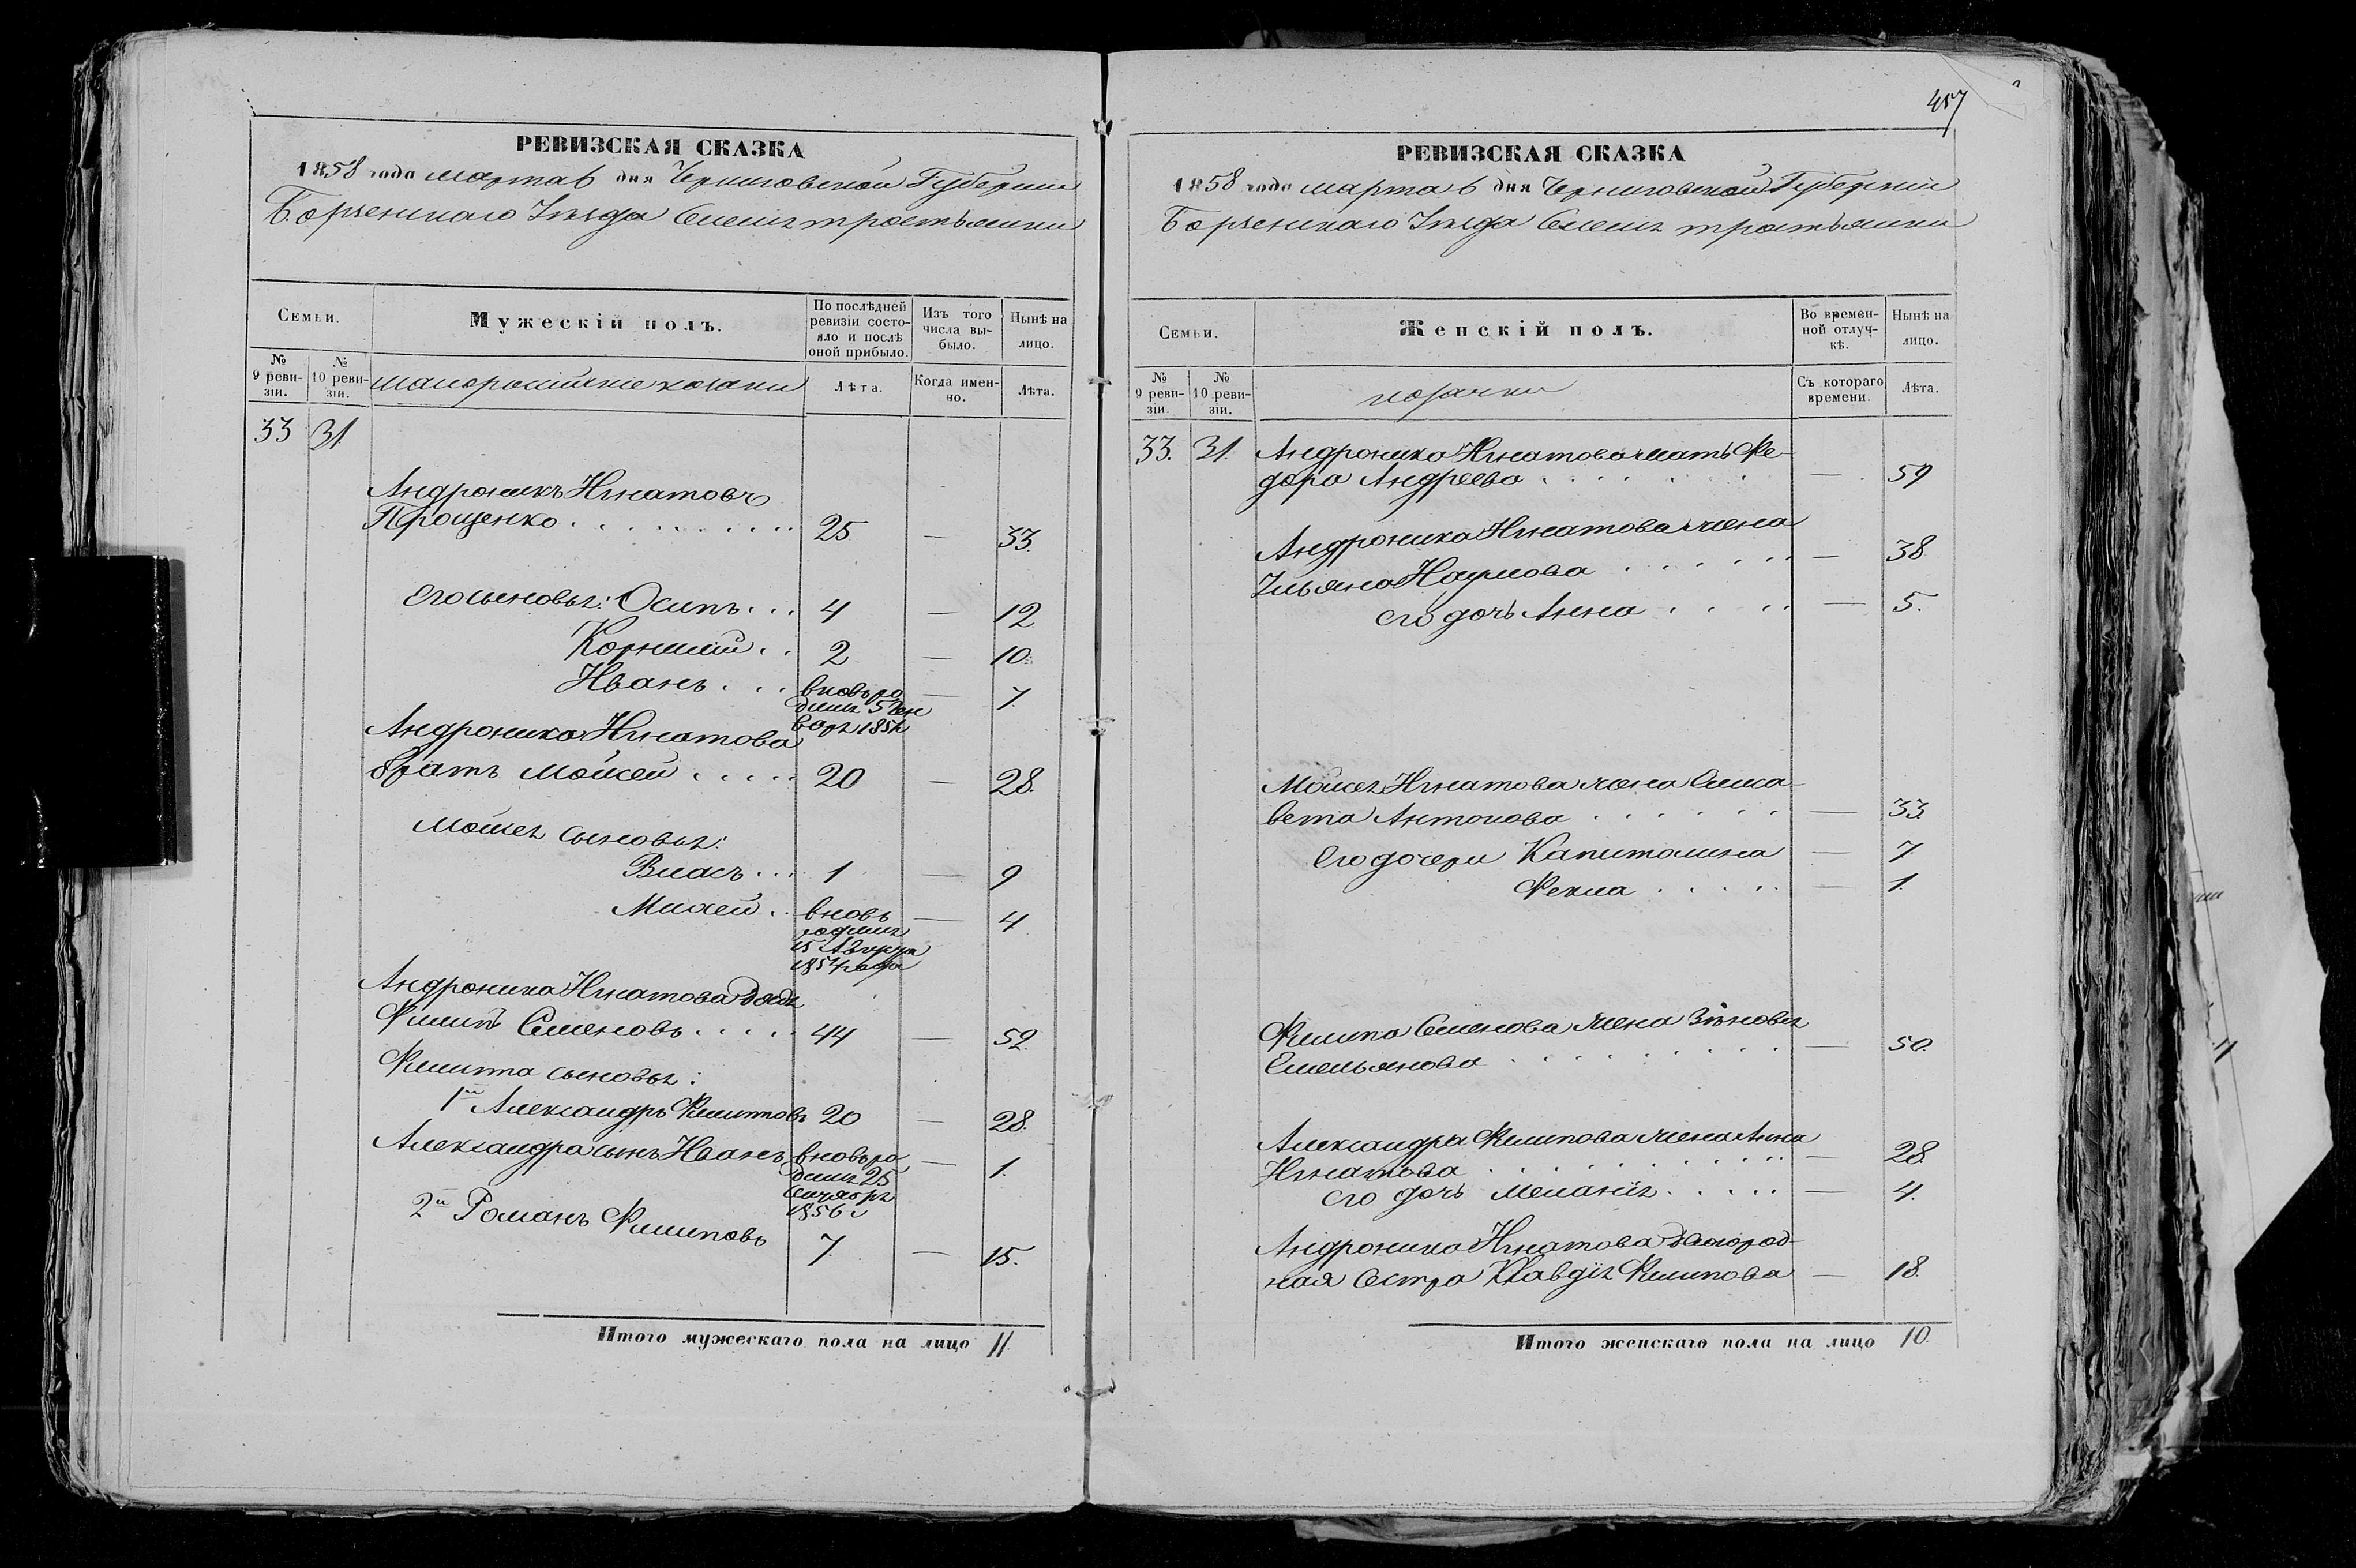 РЕВИЗСКАЯ СКАЗКА
1858 года марта 6 дня Черниговской Губернии
Борзенского Уѣзда Селенія тростянки
Семьи.
Мужескій полъ.
По послѣдней ревизіи состояло и послѣ оной прибыло.
Изъ того числа выбыло.
Нынѣ на лицо.
№ 9 ревизіи.
№ 10 ревизіи.
малороссійские козаки
Лѣта.
Когда именно.
Лѣта.
33 31
Андроникъ Игнатовъ
Прощенко . . . . . . . . . 25 — 33.
его сыновья: Осипъ . . . 4 — 12
Корнилий . . 2 — 10.
Иванъ . . . вновь ро — 7.
Андроника Игнатова
братъ Мойсей . . . . . 20 — 28.
Мойсея сыновья:
Власъ . . . 1 — 9
Михей . . вновь — 4
родился
15 Августа
1854 года
Андроника Игнатова дядя
Филипъ Семеновъ . . . . . 44 — 52.
Филиппа сыновья:
1й Александръ Филипповъ 20 — 28.
Александра сынъ Иванъ вновь ро — 1.
дился 25
1856 г
2й Романъ Филиповъ 7. — 15.
Итого мужескаго пола на лицо 11.
457
РЕВИЗСКАЯ СКАЗКА
1858 года марта 6 дня Черниговской Губернии
Борзенского Уѣзда Селенія тростянки
Семьи.
Женскій полъ.
Во временной отлучкѣ.
Нынѣ на лицо.
№ 9 ревизіи.
№ 10 ревизіи.
козачки
Съ котораго времени.
Лѣта.
33. 31. Андроника Игнатова мать Фе-
дора Андреева . . . . . . . — 59
Андроника Игнатова жена
Ульяна Наумова . . . . . . — 38
его дочь Анна . . . . — 5.
Мойсея Игнатова жена Елиса-
вета Антонова . . . . . . . — 33.
Его дочери Капитолина — 7
Фекла . . . . . — 1.
Филипа Семенова жена Зѣновія
Емельянова . . . . . . . . . — 50.
Александра Филипова жена Анна
Игнатова . . . . . . . . . . — 28.
его дочь Меланія . . . . . — 4.
Андроника Игнатова двоюрод-
ная Сестра Клавдія Филипова — 18.
Итого женскаго пола на лицо 10.